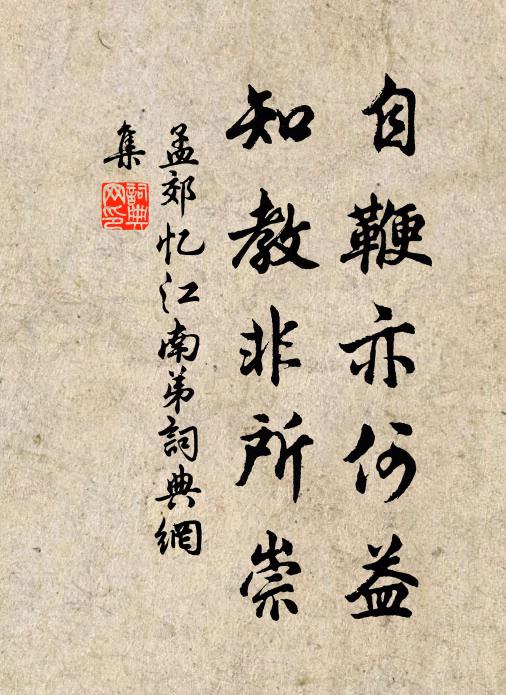 自鞭亦何益
知教非所崇
孟郊忆江南弟詞典網
集
詞典
网印